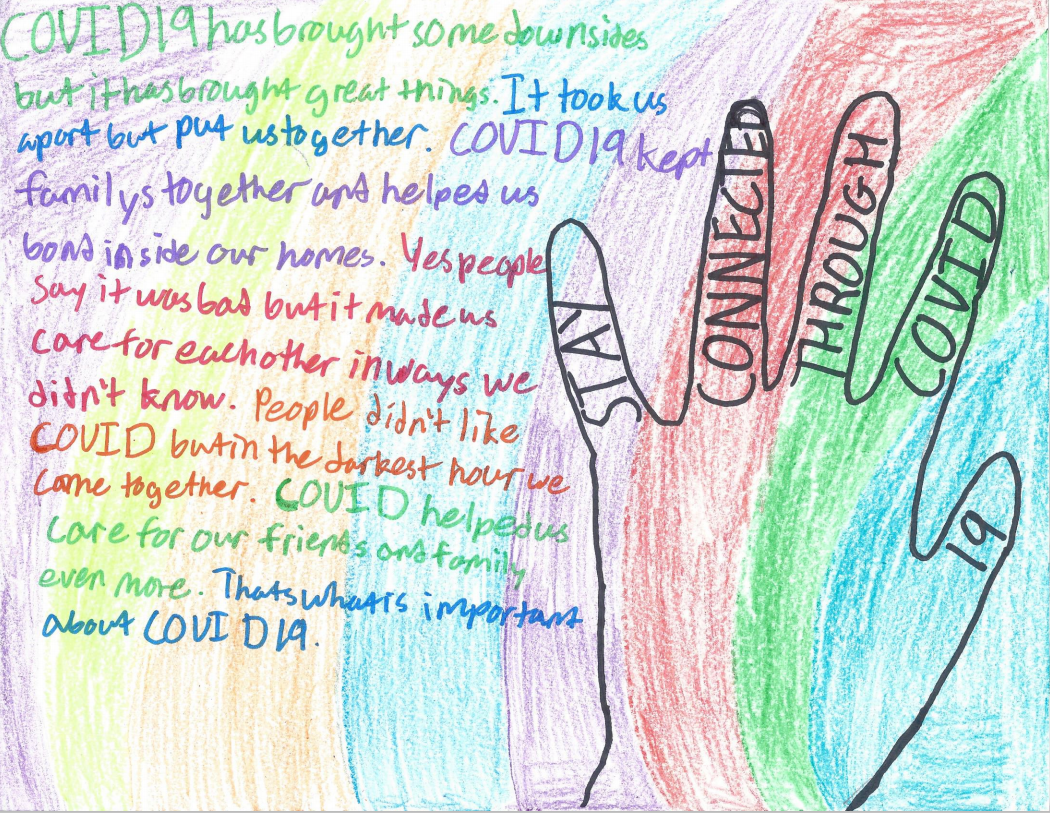 COVID19 has brought some downsides
but it has brought great things. It took us
apart but put us together. COVID19 kept
familys together and helped us
bond inside our homes. Yes people
say it was bad but it made us
care for eachother in ways we
didn't know. People didn't like
COVID but in the darkest hour we
came together. COVID helped us
care for our friends and family
even more. Thats what is important
about COVID19.
STAY
CONNECTED
THROUGH
COVID
19